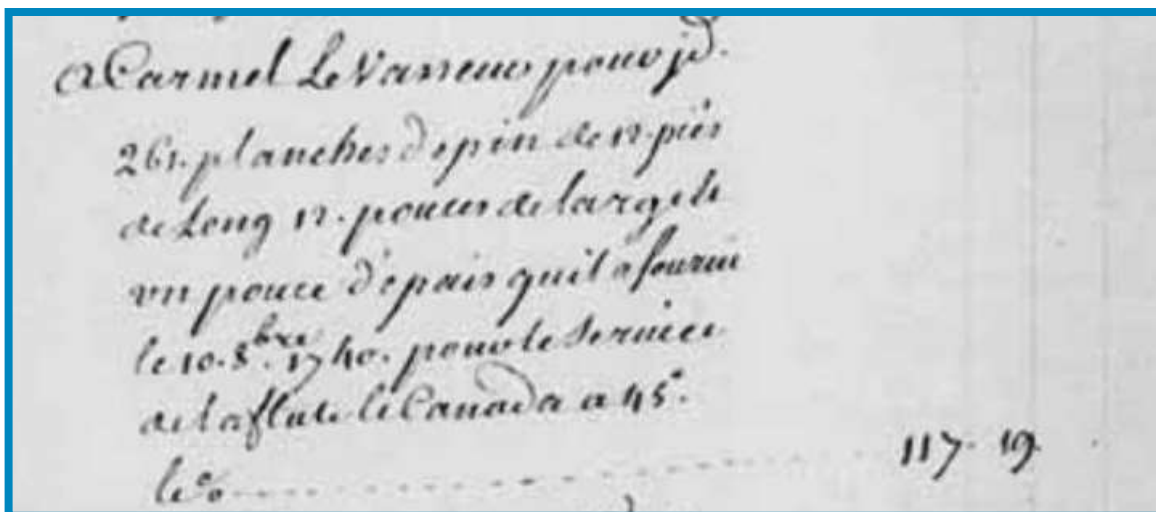 a Carmel LeVasseur pour jd.
262. planches depin de 12. piés
de Long 12. pouces de large et
un pouce d'epais quil a fourni
le 10. 8.bre 1740. pour le Service
de la flute le Canada a 45.
le % 117. 19.